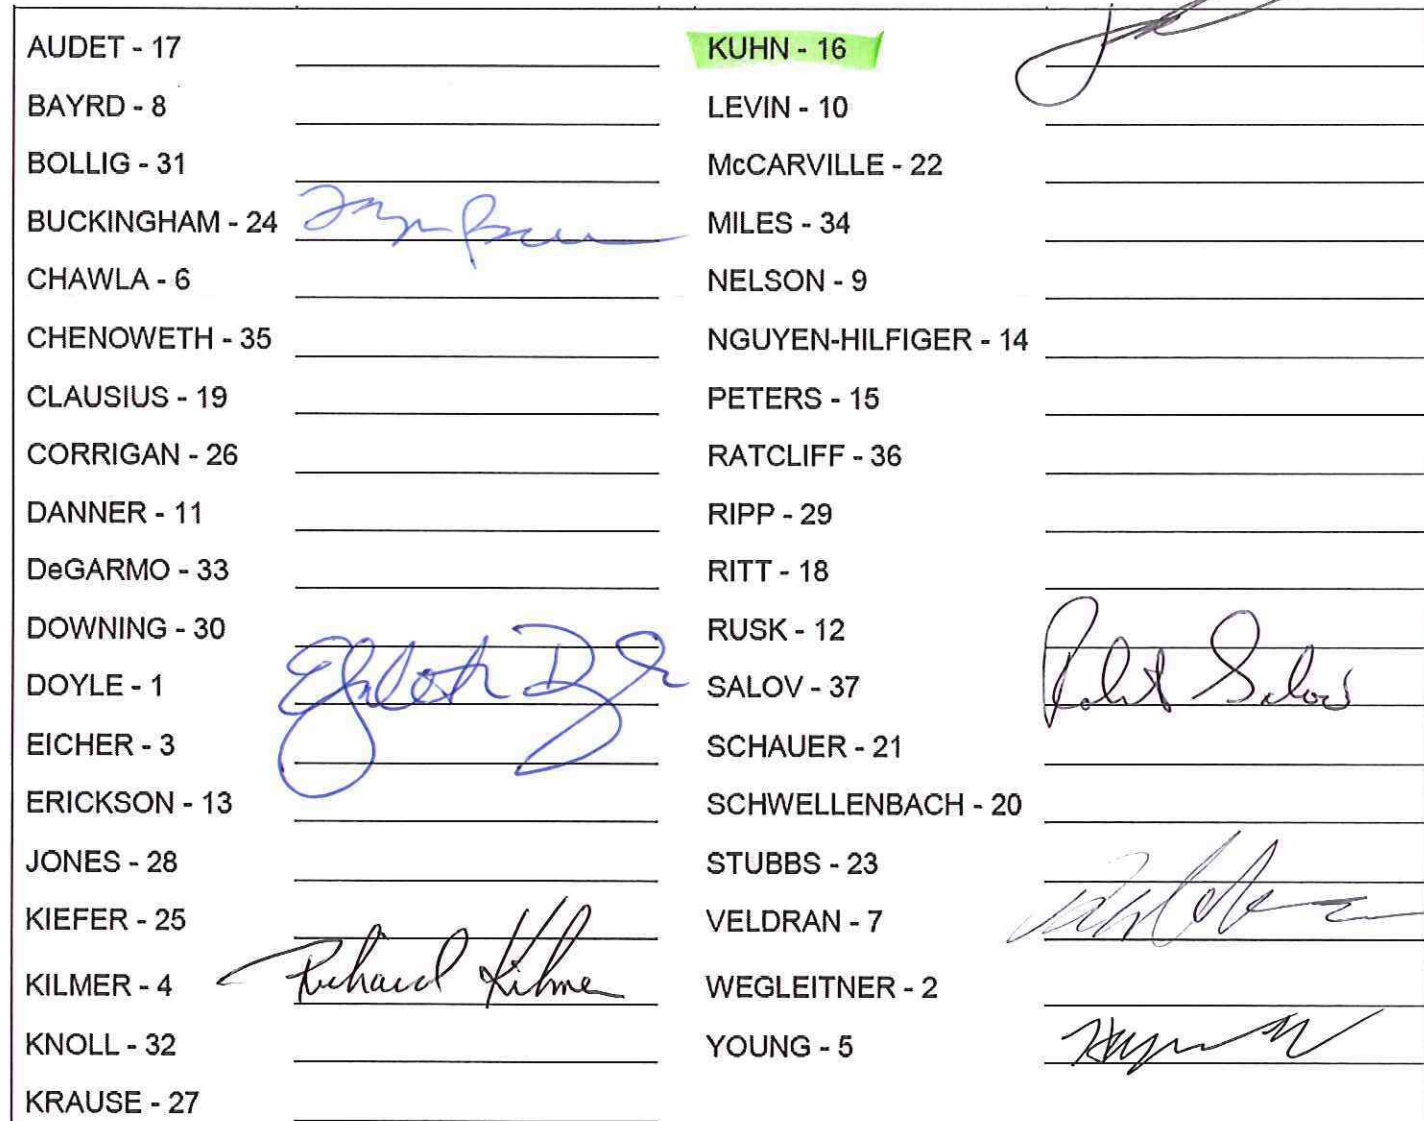 AUDET - 17
BAYRD - 8
BOLLIG - 31
BUCKINGHAM - 24
CHAWLA - 6
CHENOWETH - 35
CLAUSIUS - 19
CORRIGAN - 26
DANNER - 11
DeGARMO - 33
DOWNING - 30
DOYLE - 1
EICHER - 3
ERICKSON - 13
JONES - 28
KIEFER - 25
KILMER - 4 Richard Kilmer
KNOLL - 32
KRAUSE - 27
KUHN - 16
LEVIN - 10
McCARVILLE - 22
MILES - 34
NELSON - 9
NGUYEN-HILFIGER - 14
PETERS - 15
RATCLIFF - 36
RIPP - 29
RITT - 18
RUSK - 12
SALOV - 37 Robert Salov
SCHAUER - 21
SCHWELLENBACH - 20
STUBBS - 23
VELDRAN - 7
WEGLEITNER - 2
YOUNG - 5